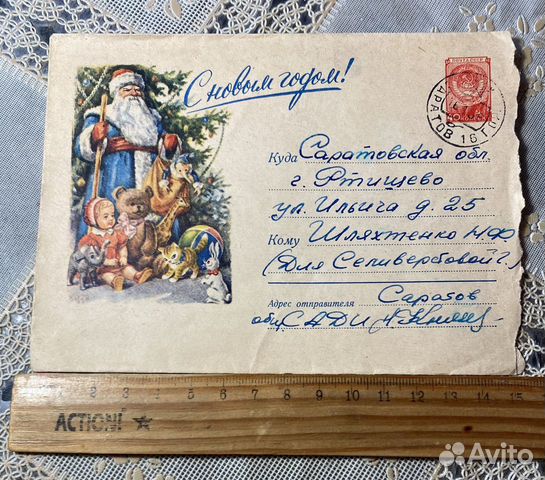 С новым годом!
ПОЧТА СССР
40 КОПЕЕК
САРАТОВ 16
Куда Саратовская обл.
г. Ртищево
ул. Ильича д. 25
Кому Шляхтенко Н Ф
(Для Селиверстовой Г.)
Адрес отправителя Саратов
общ САДИ
1 2 3 4 5 6 7 8 9 10 11 12 13 14 15
ACTION!
Avito